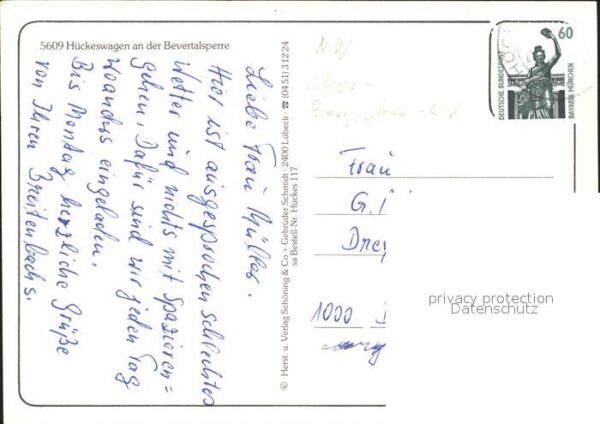 5609 Hückeswagen an der Bevertalsperre
Liebe Frau Müller.
Hier ist ausgesprochen schlechtes
Wetter und nichts mit Spazieren=
gehen. Dafür sind wir jeden Tag
woanders eingeladen.
Bis Montag herzliche Grüße
von Ihren Breitenbachs.
© Herst. u. Verlag Schöning & Co · Gebrüder Schmidt · 2400 Lübeck · ☎ (0451) 31224
sa Bestell-Nr. Hückes 117
NW
Ober-
60
DEUTSCHE BUNDESPOST
BAVARIA MÜNCHEN
Frau
G.
1000
privacy protection
Datenschutz